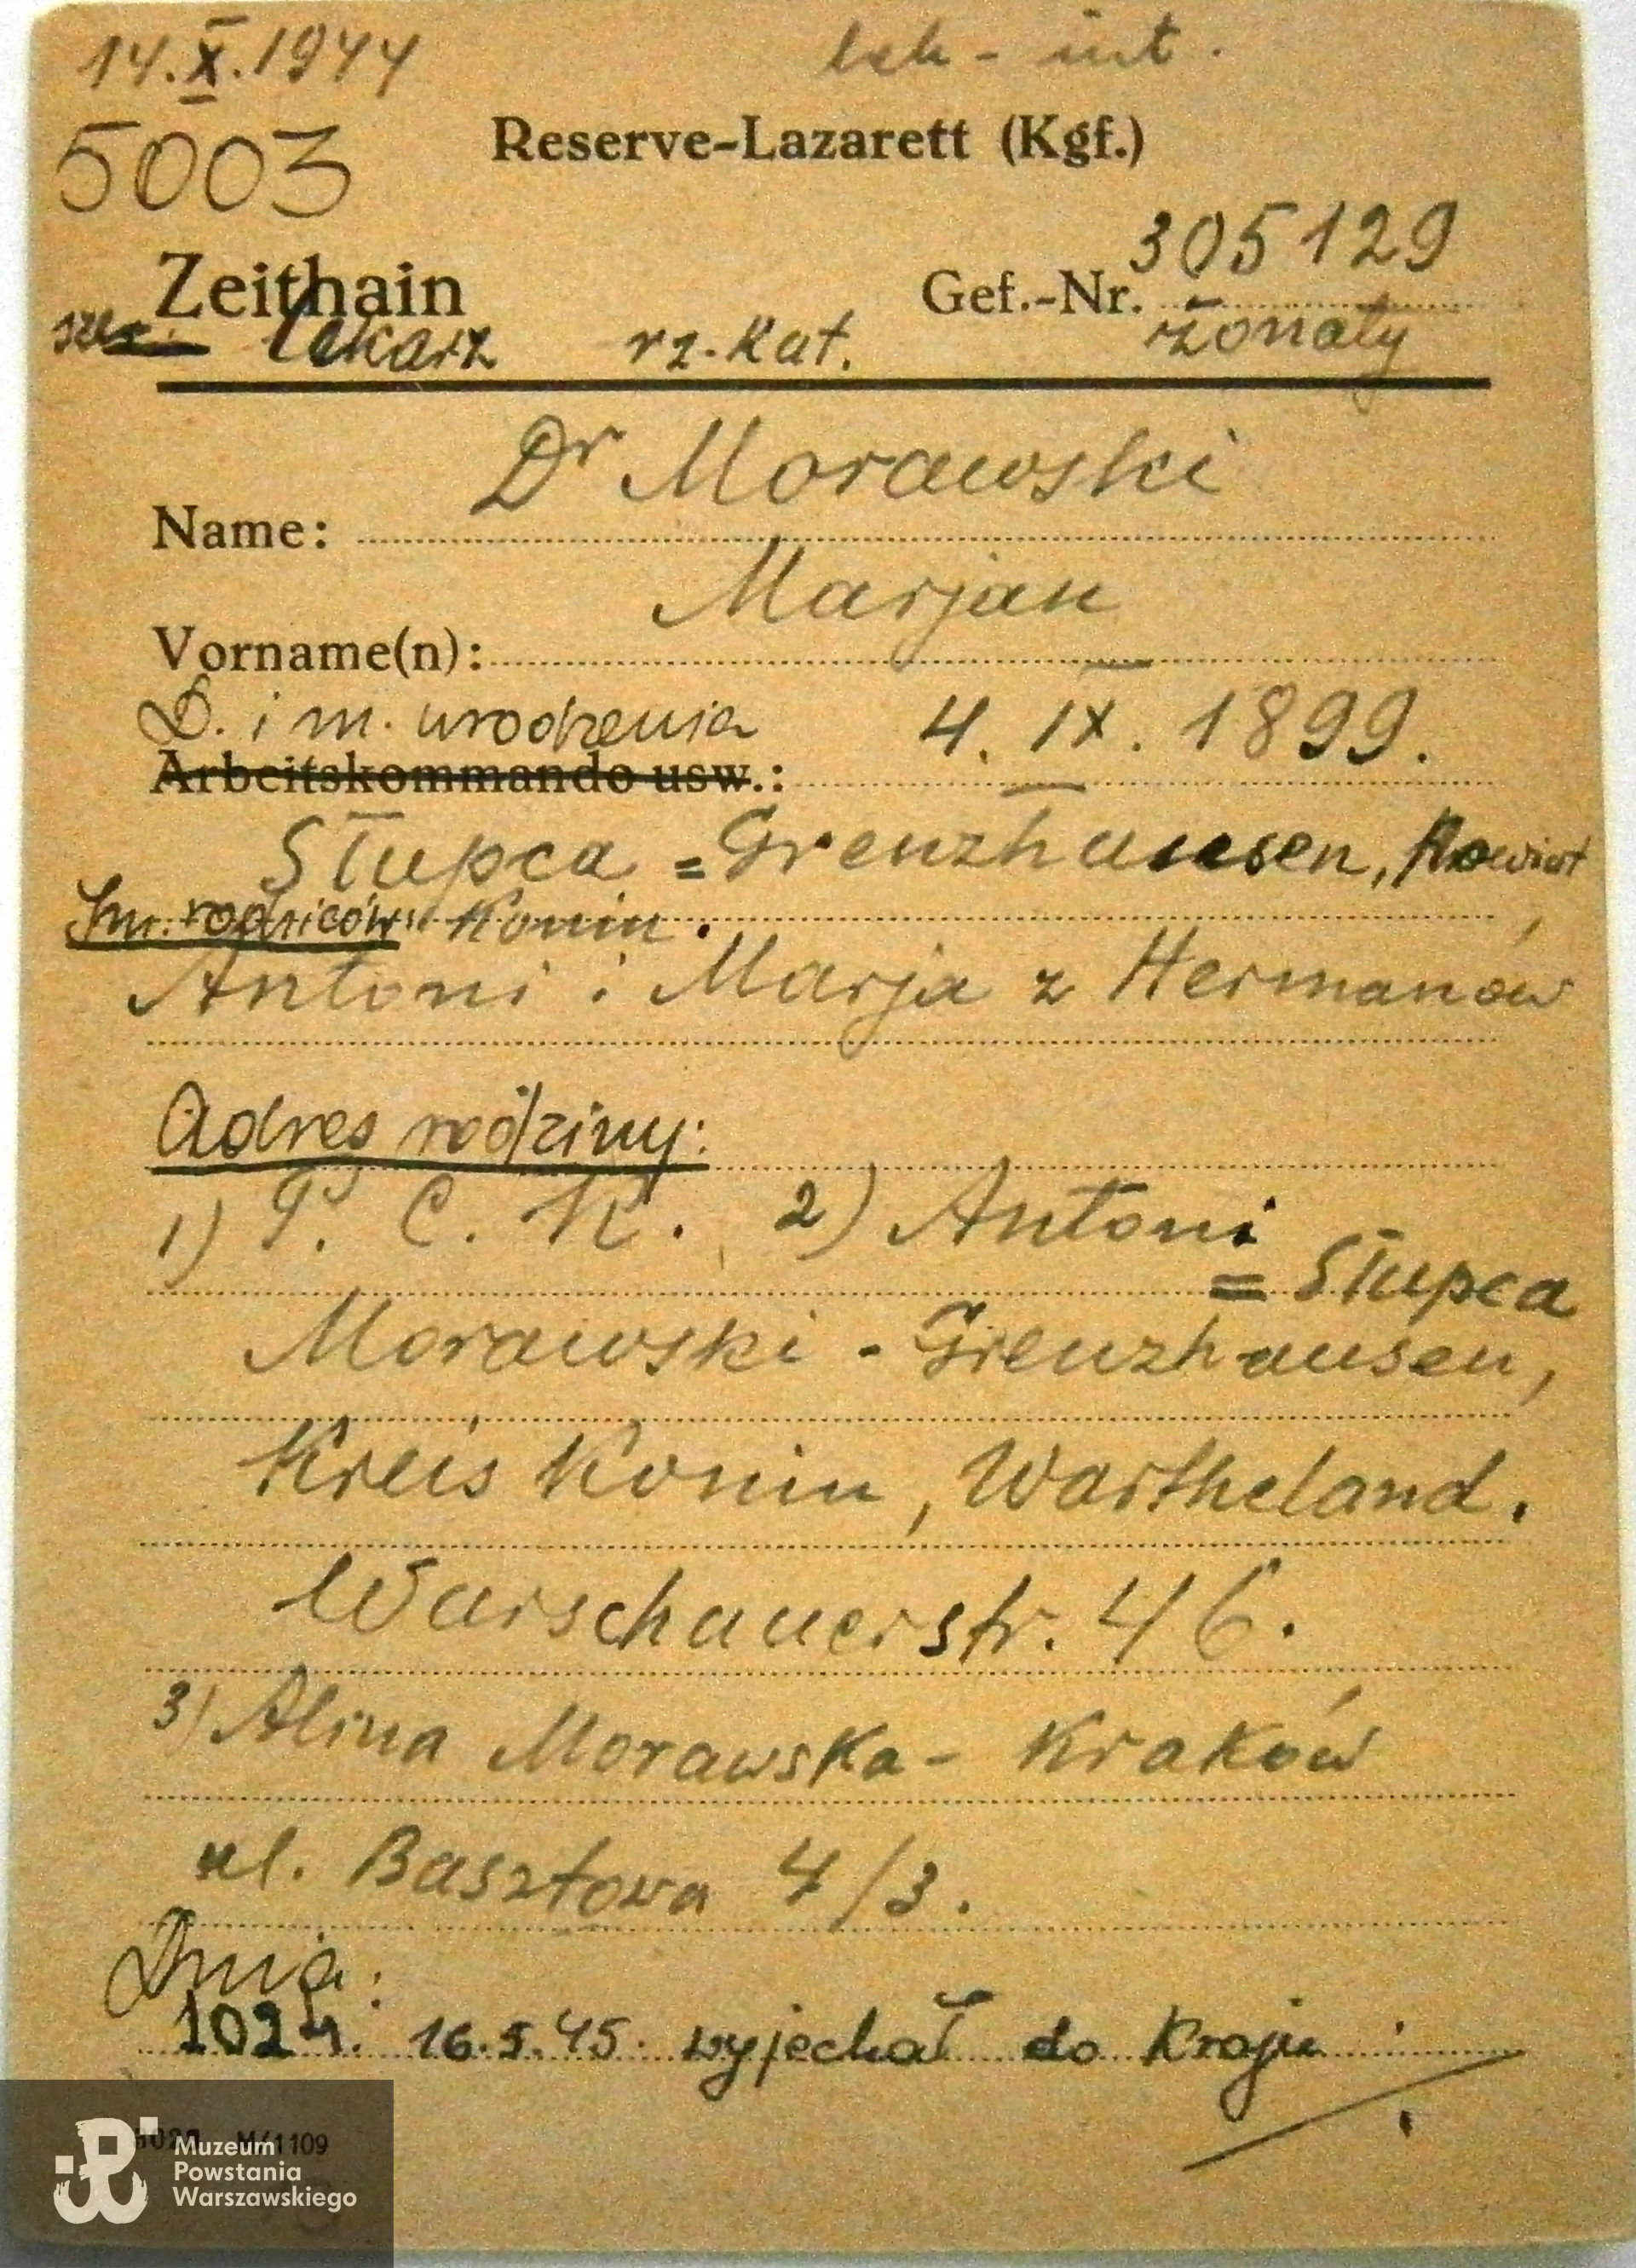 14.X.1944 lek-int.
5003 Reserve-Lazarett (Kgf.)
Zeithain Gef.-Nr. 305129
lekarz rz.kat. żonaty
Dr Morawski
Name:
Marjan
Vorname(n):
D. i m. urodzenia 4. IX. 1899.
Arbeitskommando usw.:
Słupca = Grenzhausen, Powiat
Im. rodziców: Konin.
Antoni i Marja z Hermanów
Adres rodziny:
1) P. C. K. 2) Antoni
= Słupca
Morawski - Grenzhausen,
Kreis Konin, Wartheland.
Warschauerstr. 46.
3) Alina Morawska - Kraków
ul. Basztowa 4/3.
Dnia:
16.5.45. wyjechał do Kraju
M/1109
Muzeum
Powstania
Warszawskiego